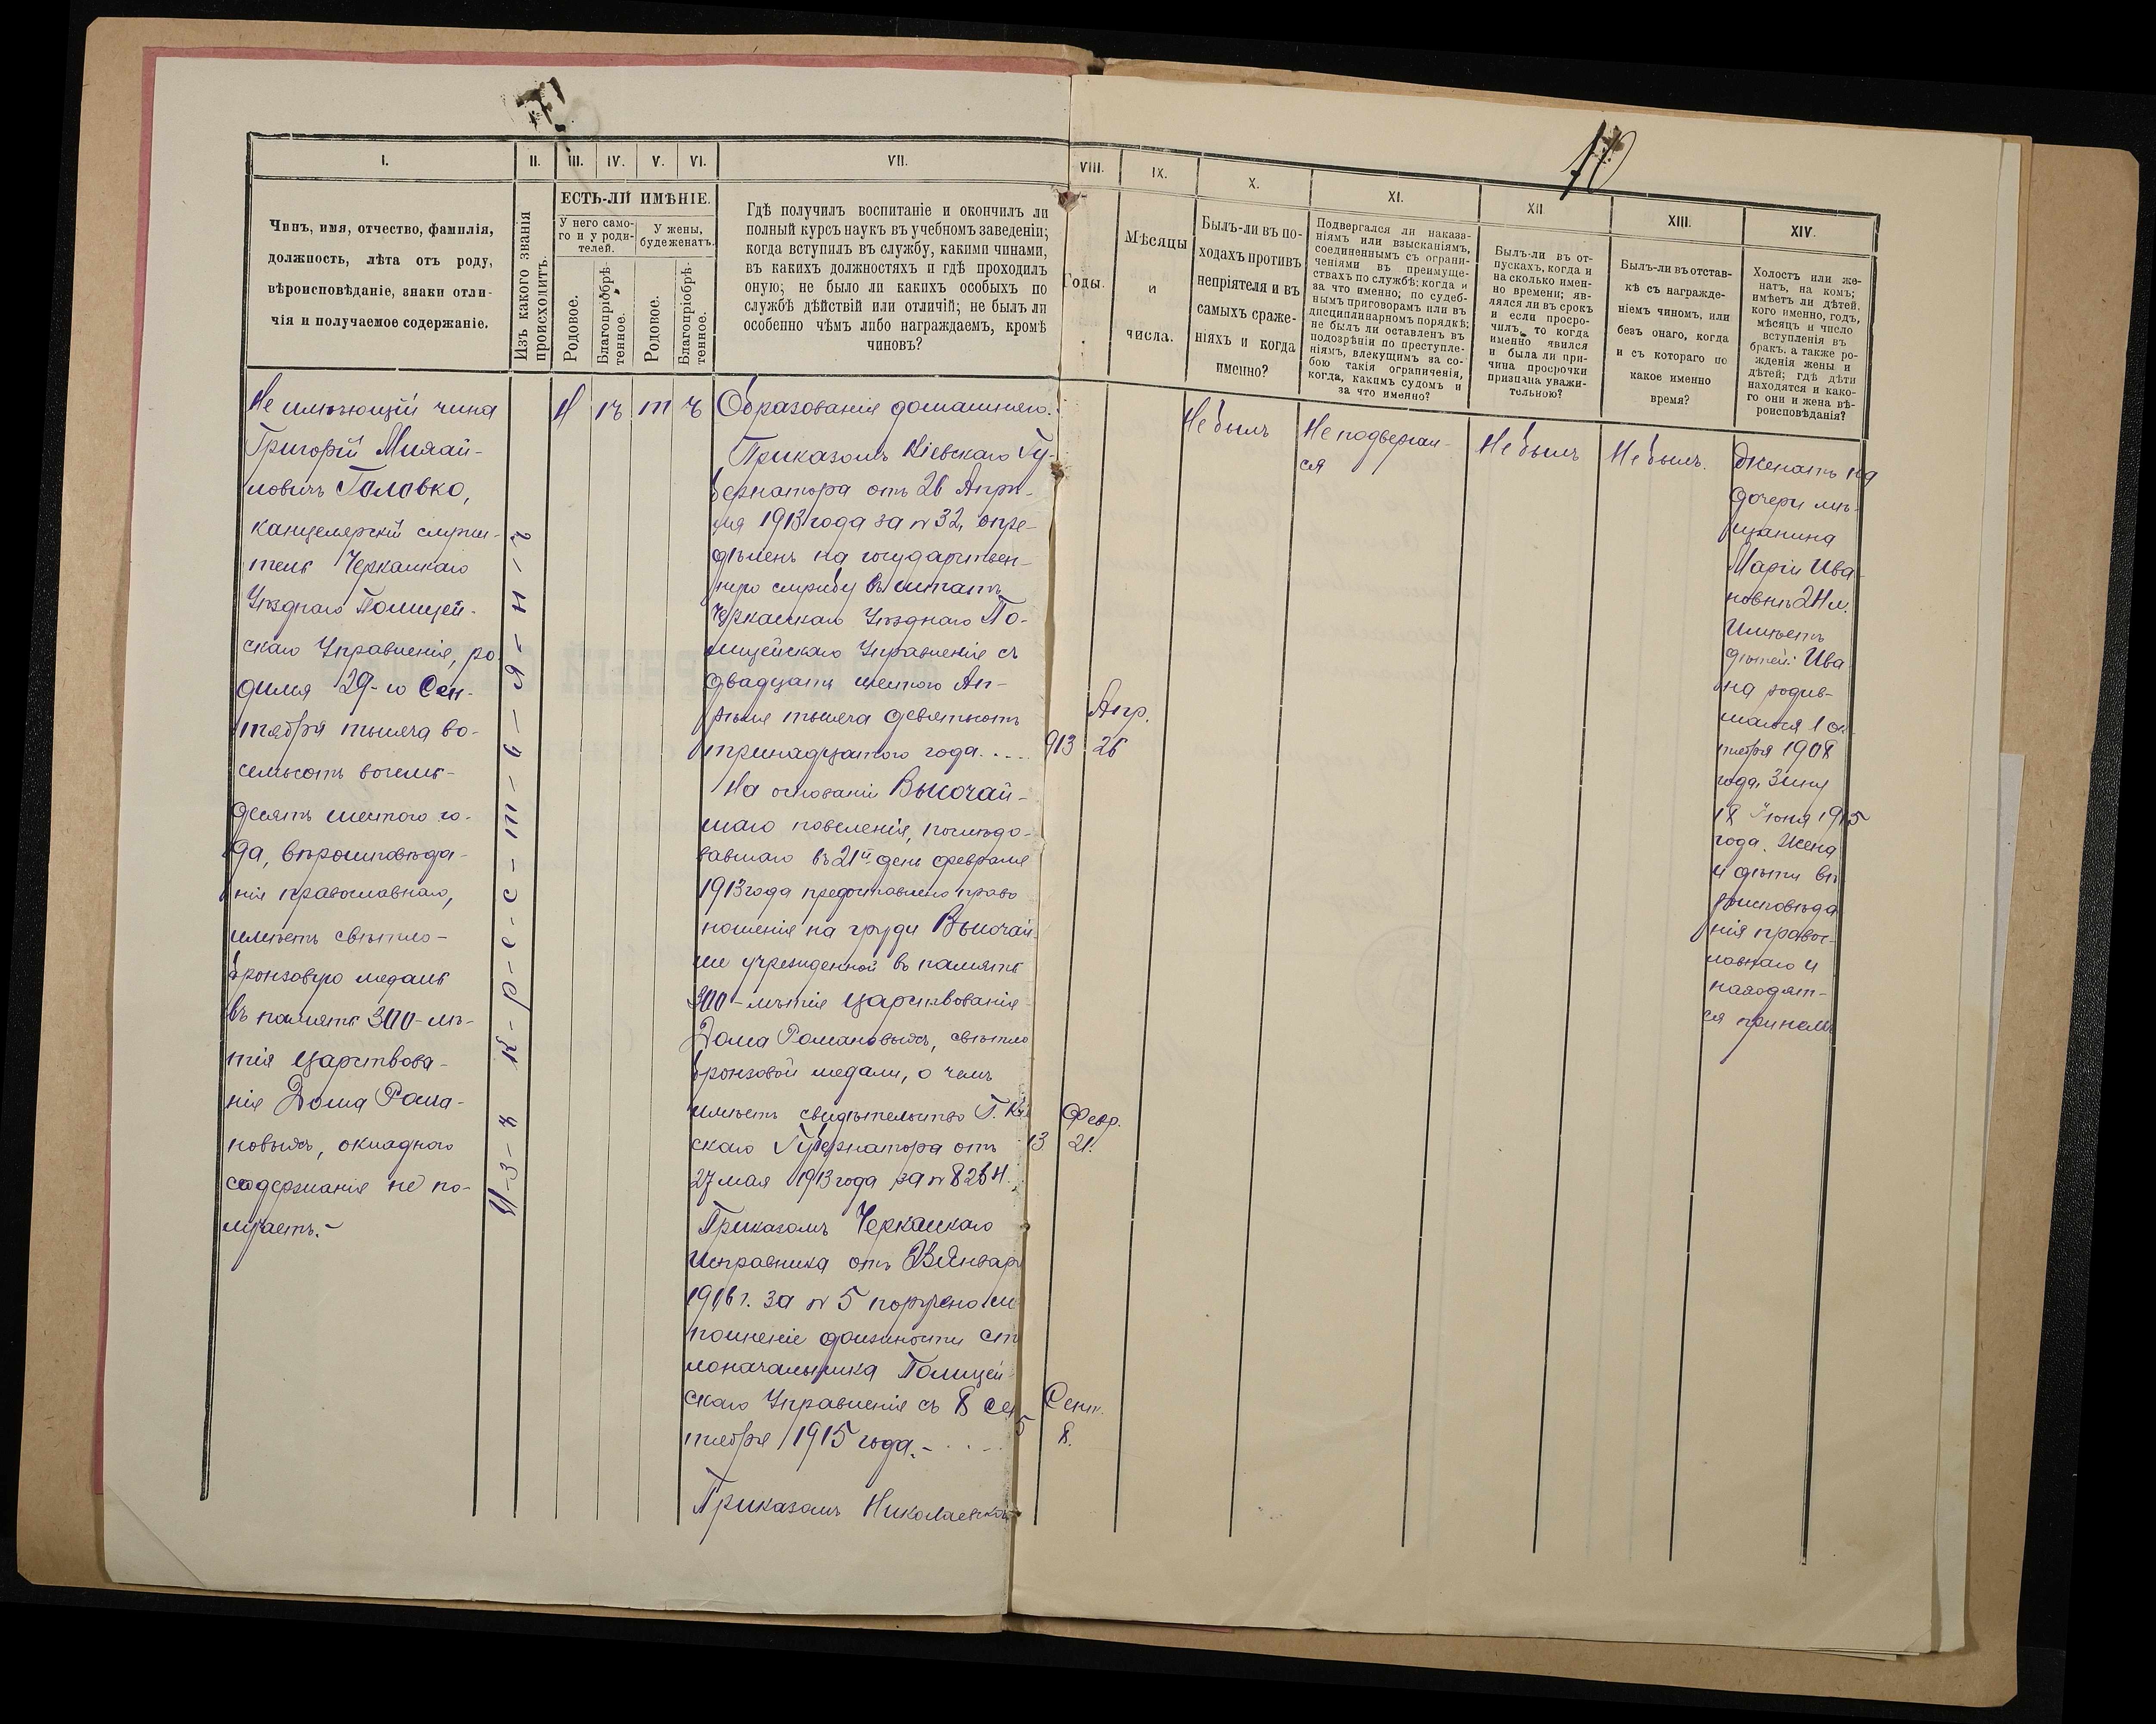 I.
II.
III.
IV.
V.
VI.
VII.
VIII.
IX.
X.
XI.
XII
XIII.
XIV.
Чинъ, имя, отчество, фамилія,
должность, лѣта отъ роду,
вѣроисповѣданіе, знаки отли-
чія и получаемое содержаніе.
Изъ какого званія
происходитъ.
ЕСТЬ-ЛИ ИМѢНІЕ.
У него само-
го и у роди-
телей.
У жены,
буде женатъ.
Родовое.
Благопріобрѣ-
тенное.
Родовое.
Благопріобрѣ-
тенное.
Гдѣ получилъ воспитаніе и окончилъ ли
полный курсъ наукъ въ учебномъ заведеніи;
когда вступилъ въ службу, какими чинами,
въ какихъ должностяхъ и гдѣ проходилъ
оную; не было ли какихъ особыхъ по
службѣ дѣйствій или отличій; не былъ ли
особенно чѣмъ либо награждаемъ, кромѣ
чиновъ?
Годы.
Мѣсяцы
и
числа.
Былъ-ли въ по-
ходахъ противъ
непріятеля и въ
самыхъ сраже-
ніяхъ и когда
именно?
Подвергался ли наказа-
ніямъ или взысканіямъ,
соединеннымъ съ ограни-
ченіями въ преимуще-
ствахъ по службѣ; когда и
за что именно; по судеб-
нымъ приговорамъ или въ
дисциплинарномъ порядкѣ;
не былъ ли оставленъ въ
подозрѣніи по преступле-
ніямъ, влекущимъ за со-
бою такія ограниченія,
когда, какимъ судомъ и
за что именно?
Былъ-ли въ от-
пускахъ, когда и
на сколько имен-
но времени; яв-
лялся ли въ срокъ
и если просро-
чилъ, то когда
именно явился
и была ли при-
чина просрочки
признана уважи-
тельною?
Былъ-ли въ отстав-
кѣ съ награжде-
ніемъ чиномъ, или
безъ онаго, когда
и съ котораго по
какое именно
время?
Холостъ или же-
натъ, на комъ;
имѣетъ ли дѣтей,
кого именно, годъ,
мѣсяцъ и число
вступленія въ
бракъ, а также ро-
жденія жены и
дѣтей; гдѣ дѣти
находятся и како-
го они и жена вѣ-
роисповѣданія?
Не имѣющій чина
Григорій Михай-
ловичъ Головко,
канцелярскій служи-
тель Черкасскаго
Уѣзднаго Полицей-
скаго Управленія, ро
дился 29-го Сен-
тября тысяча во-
семьсотъ восемь-
десятъ шестого го-
да, вѣроисповѣда-
нія православнаго,
имѣетъ свѣтло-
бронзовую медаль
въ память 300-лѣ-
тія царствова-
нія Дома Рома-
новыхъ, окладного
содержанія не по-
лучаетъ.-
И-з-ъ к-р-е-с-т-ь-я-н-ъ
Н ѣ т ъ
Образованія домашняго.
Приказомъ Кіевскаго Гу-
бернатора отъ 26 Апрѣ-
ля 1913 года за № 32, опре-
дѣленъ на государствен-
ную службу въ штатъ
Черкасскаго Уѣзднаго По-
лицейскаго Управленія съ
двадцать шестого Ап-
рѣля тысяча девятьсотъ
тринадцатого года. . . -
913
Апр.
26
На основаніи Высочай-
шаго повеленія, послѣдо-
вавшаго въ 21й день февраля
1913 года предоставлено право
ношенія на груди Высочай-
ше учрежденной въ память
300-лѣтія царствованія
Дома Романовыхъ, свѣтло
бронзовой медали, о чемъ
имѣетъ свидѣтельство Г. Кіе
скаго Губернатора отъ
27 мая 1913 года за №
13
Февр.
21.
Приказомъ Черкасскаго
Исправника отъ Январ
1916 г. за № 5 поручено ис
полненіе должности ст
лоначальника Полицей
скаго Управленія съ 8 сен
тября 1915 года.- . . -
5
Сент.
8.
Приказомъ Николаевска
Не былъ
Не подвергал-
ся
Не былъ
Не былъ.
Женатъ на
дочери мѣ-
щанина
Маріи Ива
новнѣ
Имѣетъ
дѣтей: Ива
на родив-
шагося 1 ок
тября 1908
года, Зину
18 Іюня 1915
года. Жена
и дѣти вѣ
роисповѣда
нія правос-
лавнаго и
находят-
ся при немъ